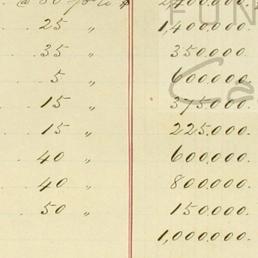 2,400.000.
25 " 1,400.000.
35 " 350.000.
5 " 600.000.
15 " 375.000.
15 " 225.000.
40 " 600.000.
40 " 800.000.
50 " 150.000.
1,000.000.
FUN
Ca